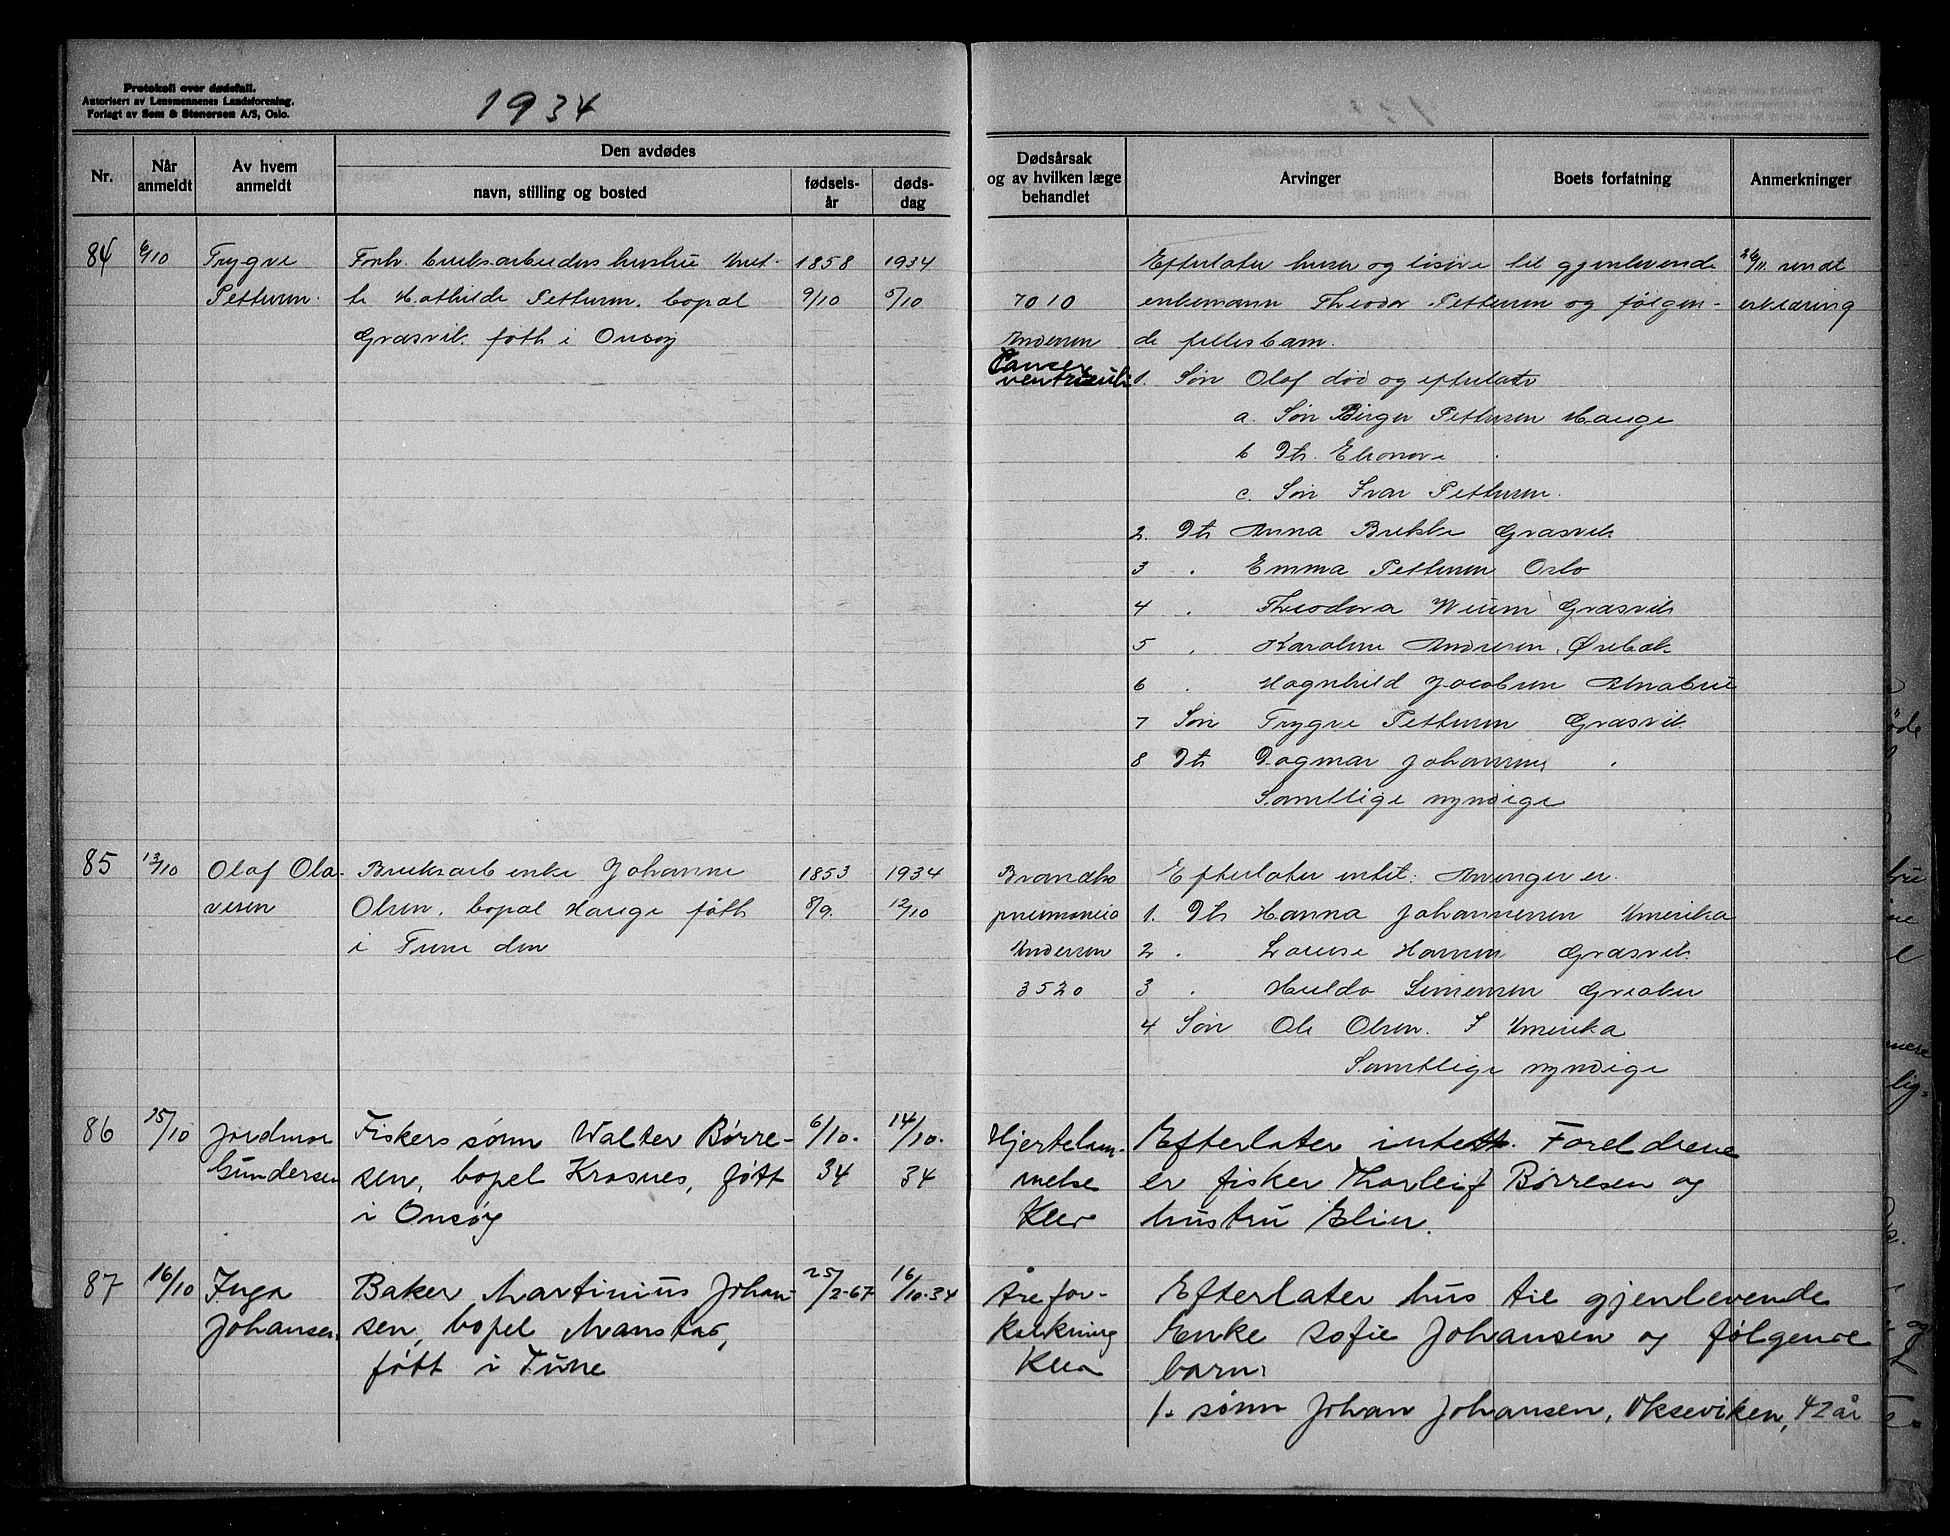 Protokoll over dødsfall.
Autorisert av Lensmennenes Landsforening.
Forlagt av Sem & Stenersen A/S, Oslo.
1934
Nr.
Når anmeldt
Av hvem anmeldt
Den avdødes
navn, stilling og bosted
fødsels-år
døds-dag
Dødsårsak og av hvilken læge behandlet
Arvinger
Boets forfatning
Anmerkninger
84 6/10 Trygve
Pettersen.
Forh. bruksarbeiders hustru
Mathilde Pettersen, bopæl
Grasvik født i Onsøy
1858
9/10
1934
5/10
7010
Andersen
Cancer
ventriculi
Efterlater huser og løsøre til gjenlevende
enkemann Theodor Pettersen og følgen-
de fellesbarn.
1. Søn Olaf død og efterlater
a. Søn Birger Pettersen Hauge
b Dtr. Elionore
c. Søn Ivar Pettersen.
2. Dtr Anna Brekke Grasvik
3 . Emma Pettersen Oslo
4 . Theodora Wium Grasvik
5 . Karoline Andresen, Ørebæk
6 . Magnhild Jacobsen Alnabru
7 Søn Trygve Pettersen Grasvik
8 Dtr Dagmar Johannesen
Samtlige myndige
26/11 sendt
erklæring
85 13/10 Olaf Ola-
vesen
Bruksarb enke Johanne
Olsen, bopæl Hauge født
i Tune den
1853
8/9.
1934
12/10
Brancho
pneumonia
Andersen
3520
Efterlater intet. Arvinger er.
1. Dtr Hanna Johannessen Amerika
2 . Lovise Hansen Grasvik
3 . Hulda Simensen Greaker
4 Søn Ole Olsen. I Amerika
Samtlige myndige
86 15/10 Jordmor
Gundersen
Fiskers sønn Walter Børre-
sen, bopel Krosnes, født
i Onsøy
6/10.
34
14/10.
34
Hjertelam-
melse
Klev
Efterlater intett. Foreldrene
er fisker Thorleif Børresen og
hustru Elien.
87 16/10 Inga
Johansen
Baker Martinius Johan-
sen, bopel Manstad,
født i Tune
25/2-67
16/10-34
Årefor-
kalkning
Klev
Efterlater hus til gjenlevende
Enke Sofie Johansen og følgende
barn:
1. sønn Johan Johansen, Økseviken, 42 år